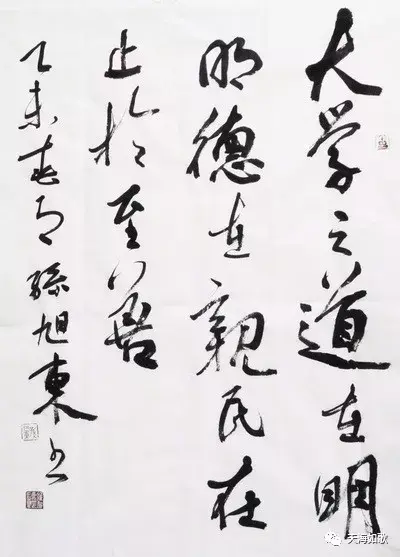 大学之道在明
明德在親民在
止於至善
乙未春月孫旭東书
天海如歌